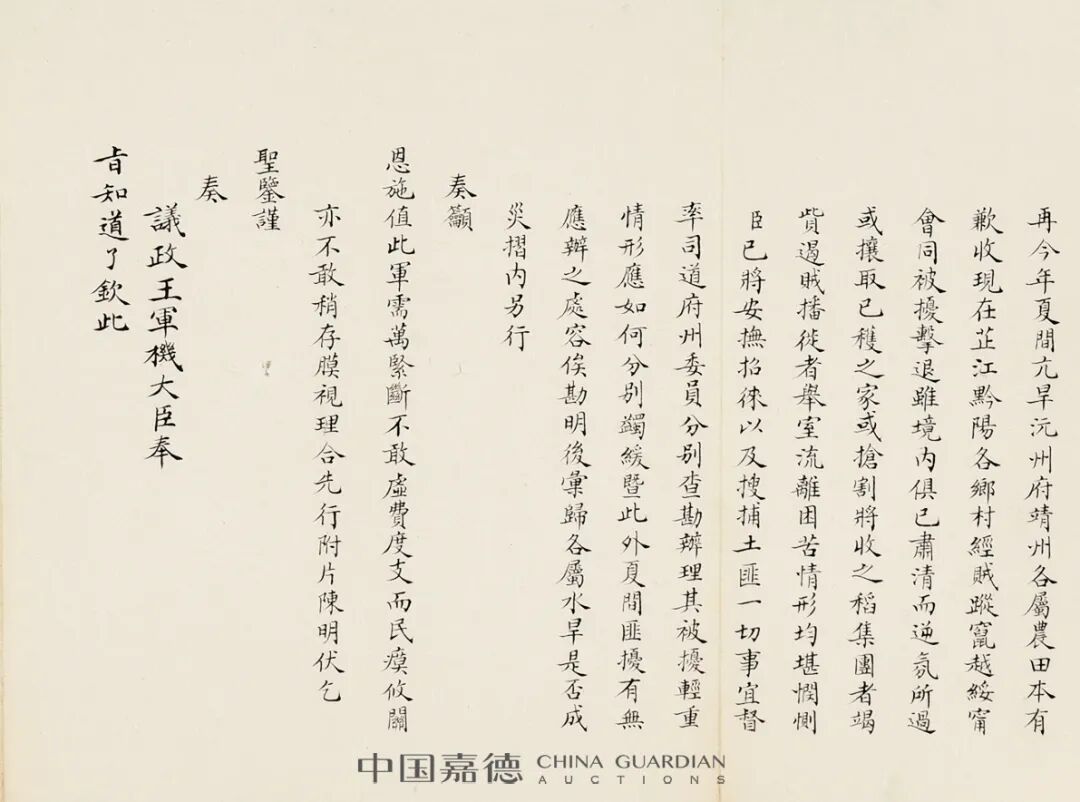 再今年夏間亢旱沅州府靖州各屬農田本有
歉收現在芷江黔陽各鄉村經賊蹤竄越綏甯
會同被擾擊退雖境內俱已肅清而逆氛所過
或攘取已穫之家或搶割將收之稻集團者竭
貲遏賊播徙者舉室流離困苦情形均堪憫惻
臣已將安撫招徠以及搜捕土匪一切事宜督
率司道府州委員分別查勘辦理其被擾輕重
情形應如何分別蠲緩暨此外夏間匪擾有無
應辦之處容俟勘明後彙歸各屬水旱是否成
災摺內另行
奏籲
恩施值此軍需萬緊斷不敢虛費度支而民瘼攸關
亦不敢稍存膜視理合先行附片陳明伏乞
聖鑒謹
奏
議政王軍機大臣奉
旨知道了欽此
中国嘉德 CHINA GUARDIAN
AUCTIONS